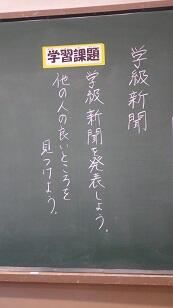 学級新聞
学習課題
学級新聞を発表しよう。
他の人の良いところを
見つけよう。